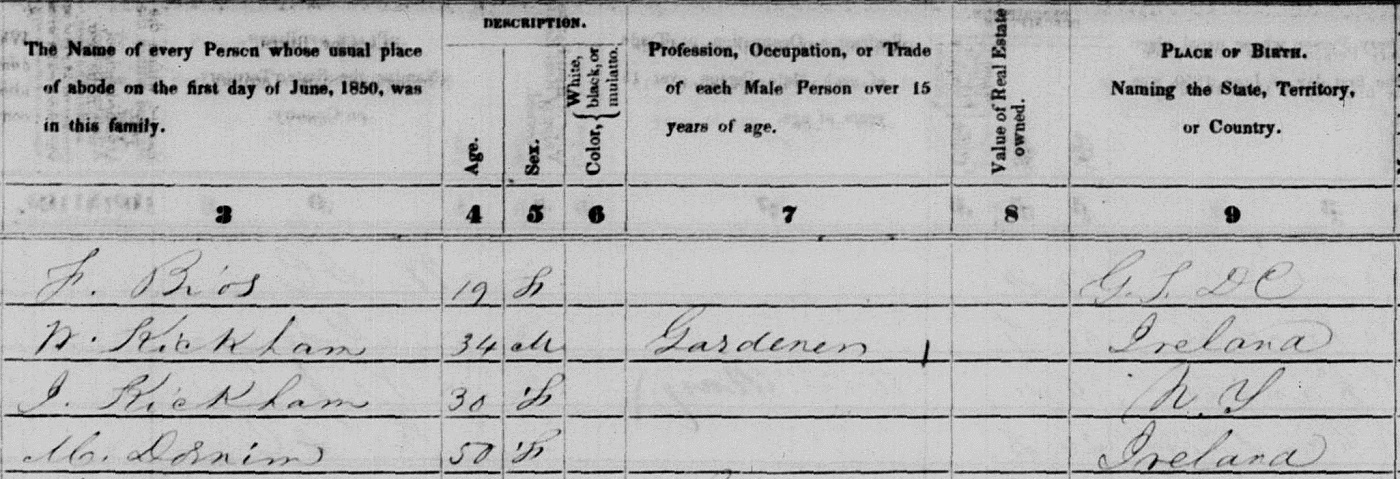 DESCRIPTION.
The Name of every Person whose usual place
of abode on the first day of June, 1850, was
in this family.
Age.
Sex.
Color, { White, black, or mulatto.
Profession, Occupation, or Trade
of each Male Person over 15
years of age.
Value of Real Estate
owned.
PLACE OF BIRTH.
Naming the State, Territory,
or Country.
3 4 5 6 7 8 9
F. 19 F D C
W. Kickham 34 M Gardener Ireland
J. Kickham 30 F N. Y
M. 50 F Ireland